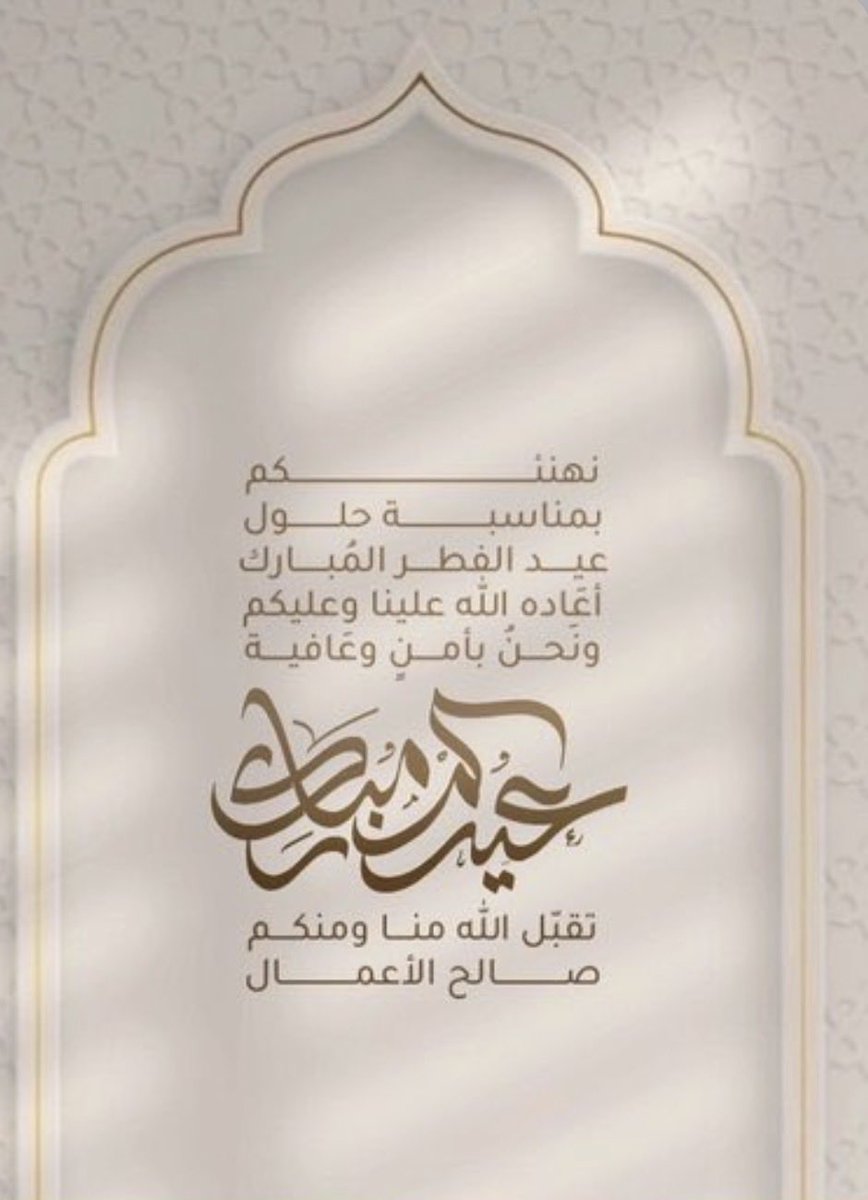 نهنئكم
بمناسبة حلول
عيد الفطر المُبارك
أعَاده الله علينا وعليكم
ونَحنُ بأمنٍ وعَافية
عيدكم مبارك
تقبّل الله منا ومنكم
صالح الأعمال